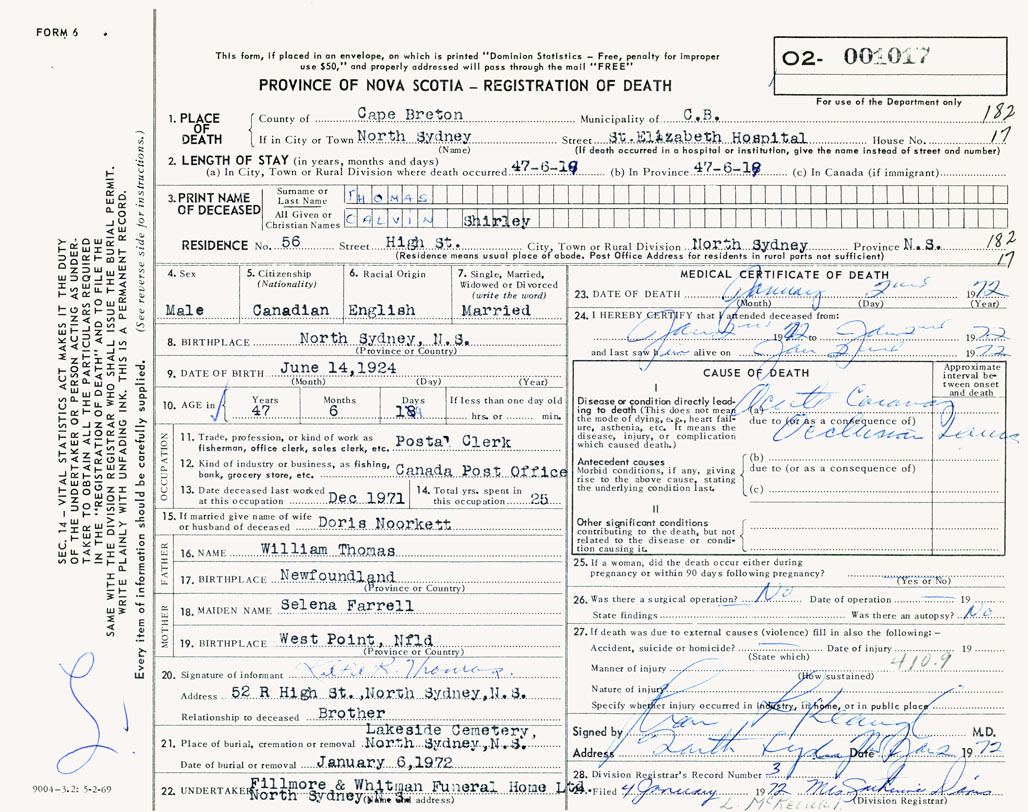 FORM 6
This form, if placed in an envelope, on which is printed "Dominion Statistics - Free, penalty for improper
use $50," and properly addressed will pass through the mail "FREE"
PROVINCE OF NOVA SCOTIA - REGISTRATION OF DEATH
O2- 001017
For use of the Department only
1. PLACE OF DEATH County of Cape Breton Municipality of C.B. 182
If in City or Town North Sydney Street St.Elizabeth Hospital House No. 17
(Name) (If death occurred in a hospital or institution, give the name instead of street and number)
2. LENGTH OF STAY (in years, months and days)
(a) In City, Town or Rural Division where death occurred 47-6-18 (b) In Province 47-6-18 (c) In Canada (if immigrant)
3. PRINT NAME OF DECEASED Surname or Last Name THOMAS
All Given or Christian Names CALVIN Shirley
RESIDENCE No. 56 Street High St. City, Town or Rural Division North Sydney Province N.S. 182
(Residence means usual place of abode. Post Office Address for residents in rural parts not sufficient) 17
4. Sex Male
5. Citizenship (Nationality) Canadian
6. Racial Origin English
7. Single, Married, Widowed or Divorced (write the word) Married
8. BIRTHPLACE North Sydney, N.S.
(Province or Country)
9. DATE OF BIRTH June 14,1924
(Month) (Day) (Year)
10. AGE in Years 47 Months 6 Days 18 If less than one day old hrs. or min.
OCCUPATION
11. Trade, profession, or kind of work as fisherman, office clerk, sales clerk, etc. Postal Clerk
12. Kind of industry or business, as fishing, bank, grocery store, etc. Canada Post Office
13. Date deceased last worked at this occupation Dec 1971
14. Total yrs. spent in this occupation 25
15. If married give name of wife or husband of deceased Doris Noorkett
FATHER
16. NAME William Thomas
17. BIRTHPLACE Newfoundland
(Province or Country)
MOTHER
18. MAIDEN NAME Selena Farrell
19. BIRTHPLACE West Point, Nfld
(Province or Country)
20. Signature of informant R. Thomas
Address 52 R High St.,North Sydney,N.S.
Relationship to deceased Brother
21. Place of burial, cremation or removal Lakeside Cemetery,
North Sydney,N.S.
Date of burial or removal January 6,1972
22. UNDERTAKER Fillmore & Whitman Funeral Home Ltd.
North Sydney N.S.
(Name and address)
MEDICAL CERTIFICATE OF DEATH
23. DATE OF DEATH January 2nd 1972
(Month) (Day) (Year)
24. I HEREBY CERTIFY that I attended deceased from:
Jan 2nd 1972 to Jan 2nd 1972
and last saw him alive on Jan 2nd 1972
CAUSE OF DEATH
Approximate interval between onset and death
I
Disease or condition directly leading to death (This does not mean the mode of dying, e.g., heart failure, asthenia, etc. It means the disease, injury, or complication which caused death.)
(a) Acute Coronary
due to (or as a consequence of)
Occlusion
Antecedent causes
Morbid conditions, if any, giving rise to the above cause, stating the underlying condition last.
(b)
due to (or as a consequence of)
(c)
II
Other significant conditions contributing to the death, but not related to the disease or condition causing it.
25. If a woman, did the death occur either during pregnancy or within 90 days following pregnancy?
(Yes or No)
26. Was there a surgical operation? No Date of operation 19
State findings Was there an autopsy? No
27. If death was due to external causes (violence) fill in also the following: -
Accident, suicide or homicide? Date of injury 19
(State which) 410.9
Manner of injury
(How sustained)
Nature of injury
Specify whether injury occurred in industry, in home, or in public place
Signed by M.D.
Address North Sydney Date Jan 1972
28. Division Registrar's Record Number 3
29. Filed 4 January 1972 Mrs
(Division Registrar)
SEC. 14 - VITAL STATISTICS ACT MAKES IT THE DUTY
OF THE UNDERTAKER OR PERSON ACTING AS UNDER-
TAKER TO OBTAIN ALL THE PARTICULARS REQUIRED
IN THE "REGISTRATION OF DEATH" AND TO FILE THE
SAME WITH THE DIVISION REGISTRAR WHO SHALL ISSUE THE BURIAL PERMIT.
WRITE PLAINLY WITH UNFADING INK. THIS IS A PERMANENT RECORD.
Every item of information should be carefully supplied. (See reverse side for instructions.)
9004-3.2: 5-2-69